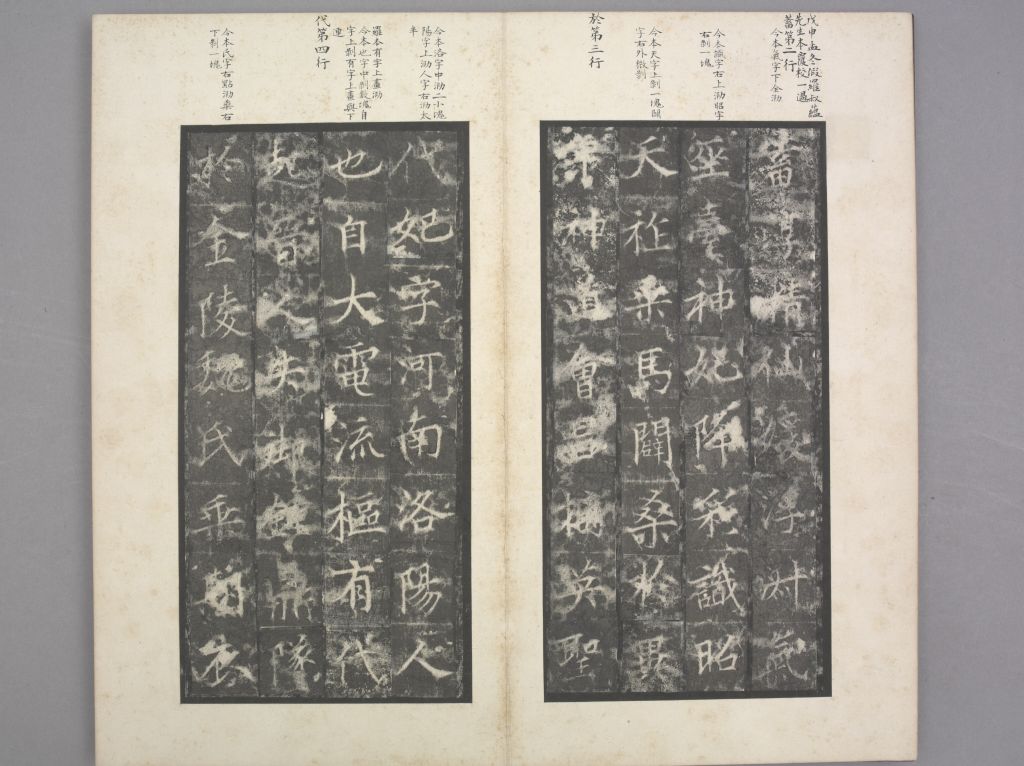 戊申孟冬假羅叔蘊
先生本覆校一過
蓄第二行
今本氣字下全泐
今本識字右上泐昭字
右剝一塊
今本天字上剝一塊闢
字右外微剝
於第三行
蓄精仙媛浮氣
巫臺神妃降彩識昭
天祚乘馬闢桑於異
神道會昌摘英聖
今本洛字中泐二小塊
陽字上泐人字右泐太
半
羅本有字上畫泐
今本也字中剝數塊自
字上剝有字上畫與下
連
代第四行
今本氏字右點泐乖右
下剝一塊
代妃字河南洛陽人
也自大電流樞有代
晉人失鼎隊
於金陵魏氏乖衣